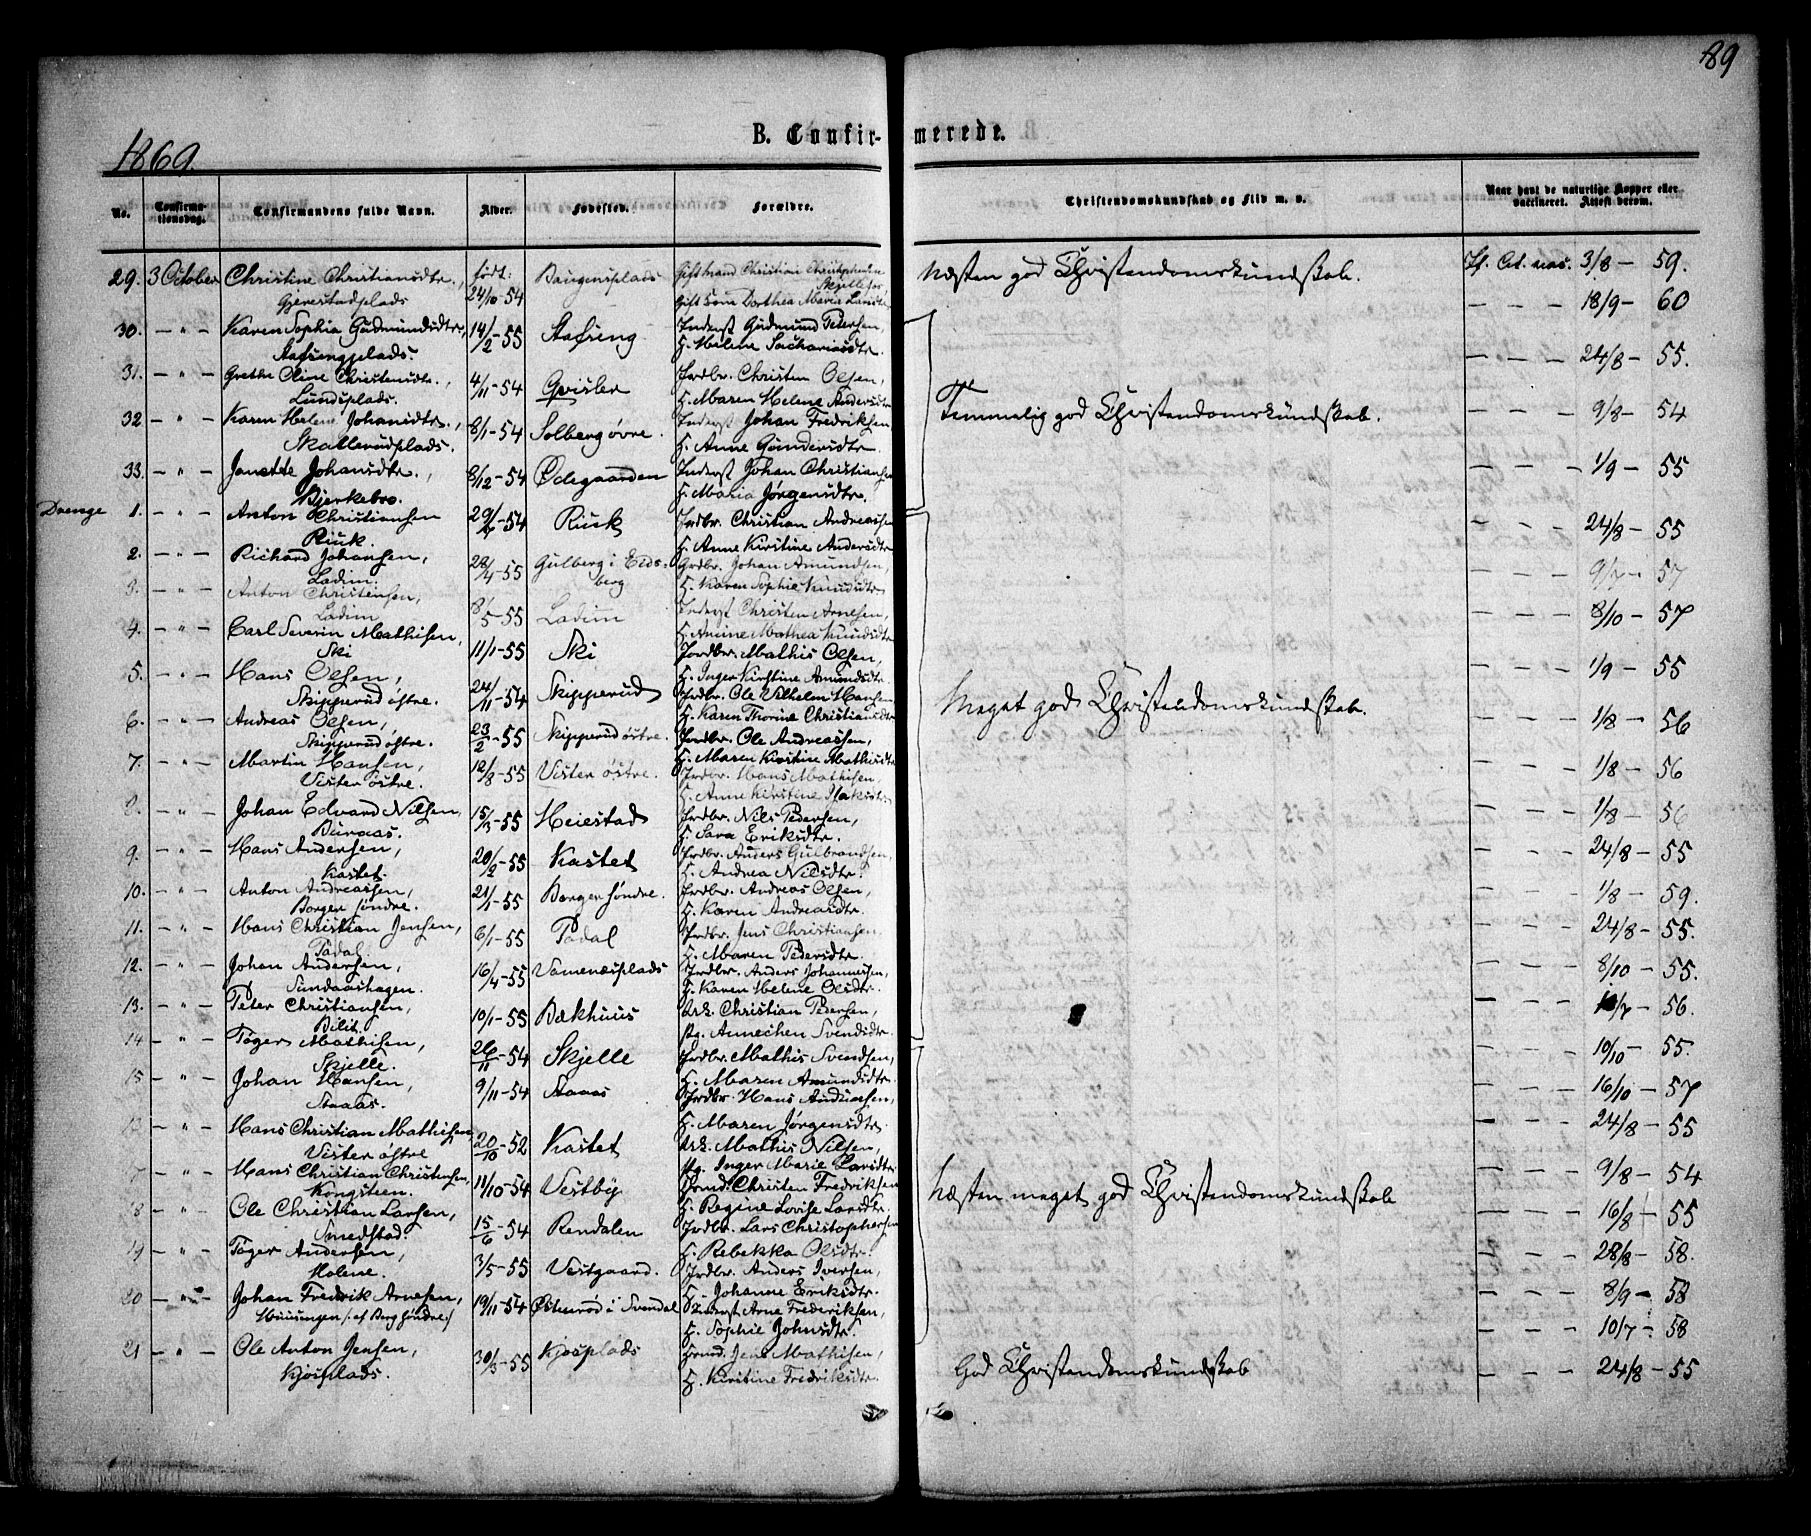 89
1869.
B. Confirmerede.
No.
Confirma-
tionsdag.
Confirmandens fulde Navn.
Alder.
Fødested.
Forældre.
Christendomskundskab og Flid m. v.
Naar havt de naturlige Kopper eller
vaccineret. Attest derom.
29. 3 October Christine Christiansdtr., født: Baugensplads Gift mand Christian Christophersen
Gjerestadplads 24/10-54 Skjellefos, Gift kone Dorthea Maria Larsdtr
Næsten god Christendomskundskab. 3/8 - 59.
30. - " - Karen Sophia Gudmundsdtr., 14/2-55 Inderst Gudmund Pedersen, 18/9 - 60
H. Helene Sachariasdtr.
31. - " - Grethe Oline Christensdtr., 4/11-54 Gvisler Jordbr. Christen Olsen, 24/8 - 55.
Lundsplads. H. Maren Helene Andersdtr
32 - " - Karen Helene Johansdtr., 8/1-54 Solberg øvre. Inderst Johan Fredriksen 9/8 - 54
Skallerudplads. H. Anne Gundersdtr.
Temmelig god Christendomskundskab.
33. - " - Janette Johansdtr., 8/12-54 Ødegaarden Inderst Johan Christiansen 1/9 - 55
Bjerkebro. H. Maria Jørgensdtr.
Drenge 1. - " - Anton Christiansen -54 Riuk Jordbr. Christian Andreassen 24/8 - 55
Riuk. H. Anne Kirstine Andersdtr
2. - " - Richard Johansen, 28/4-55 Gulberg i Eids- Gordbr. Johan Amundsen, 9/7 - 57
Ladim. berg H. Karen Sophie Knudsdtr
3. - " - Anton Christensen, 8/5-55 Ladim Inderst Christen Arnesen, 8/10 - 57
Ladim H. Anine Mathea Knudsdtr
4. - " - Carl Severin Mathisen, 11/1-55 Ski Jordbr. Mathis Olsen, 1/9 - 55
Ski H. Inger Kirstine Amundsdtr
5. - " - Hans Olsen, 24/11-54 Skipperud Jordbr. Ole Vilhelm Hansen 1/8 - 56
Skipperud østre. H. Karen Thorine Christiansdtr
Meget god Christendomskundskab.
6. - " - Andreas Olsen, 23/2-55 Skipperud østre. Jordbr. Ole Andreassen, 1/8 - 56
Skipperud østre. H. Maren Kirstine Mathisdtr
7. - " - Martin Hansen, 12/3-55 Vister østre. Jordbr. Hans Mathisen, 1/8 - 56
Vister østre. H. Anne Kirstine Isaksdtr
8. - " - Johan Edvard Nilsen, 15/3-55 Heiestad Jordbr. Nils Pedersen, 24/8 - 55
Buraas. H. Sara Eriksdtr.
9. - " - Hans Andersen, 20/2-55 Kastet Jordbr. Anders Gulbrandsen, 1/8 - 59.
Kastet. H. Andrea Nilsdtr.
10. - " - Anton Andreassen, 21/1-55 Borger søndre. Jordbr. Andreas Olsen, 24/8 - 55.
Borger søndre. H. Karen Andreasdtr.
11. - " - Hans Christian Jensen, 6/1-55 Tødal Jordbr. Jens Christiansen 8/10 - 55.
Tødal H. Maren Pedersdtr.
12. - " - Johan Andersen, 16/4-55 Vamenæsplads Jordbr. Anders Johannesen, /7 - 56.
Sundaashagen. H. Karen Helene Olsdtr.
13. - " - Peter Christiansen, 10/1-55 Bækhuus Arb. Christian Pedersen, 10/10 - 55.
Bilit. Pg. Annechen Svendsdtr.
14 - " - Tøger Mathisen, 26/11-54 Skjelle Jordbr. Mathis Svendsen, 16/10 - 57
Skjelle. H. Maren Amundsdtr.
15 - " - Johan Hansen, 9/11-54 Staaas Jordbr. Hans Andersen, 24/8 - 55
Staaas. H. Maren Jørgensdtr.
- " - Hans Christian Mathisen 20/10-52 Kastet Arb. Mathis Nilsen, 9/8 - 54
Vister østre Pg. Inger Marie Larsdtr
17 - " - Hans Christian Christensen, 11/10-54 Vestby Christen Fredriksen 16/8 - 55
Kongsteen. H. Regine Lovise Larsdtr.
Næsten meget god Christendomskundskab
18 - " - Ole Christian Larsen, 15/6-54 Rendalen Jordbr. Lars Christophersen 28/8 - 58.
Smedstad. H. Rebekka Olsdtr.
19 - " - Tøger Andersen, 3/5-55 Vestgaard. Jordbr. Anders Iversen, 8/9 - 58
Holene. H. Johanne Eriksdtr.
20 - " - Johan Fredrik Arnesen, 19/11-54 Østenrød i Svendal Inderst Arne Frederiksen, 10/7 - 58
Huusingen /: af Borg søndre:/ H. Sophie Johnsdtr.
21 - " - Ole Anton Jensen, 30/3-55 Kjosplads Jens Mathisen, 24/8 - 55
Kjosplads. H. Kirstine Fredriksdtr.
God Christendomskundskab